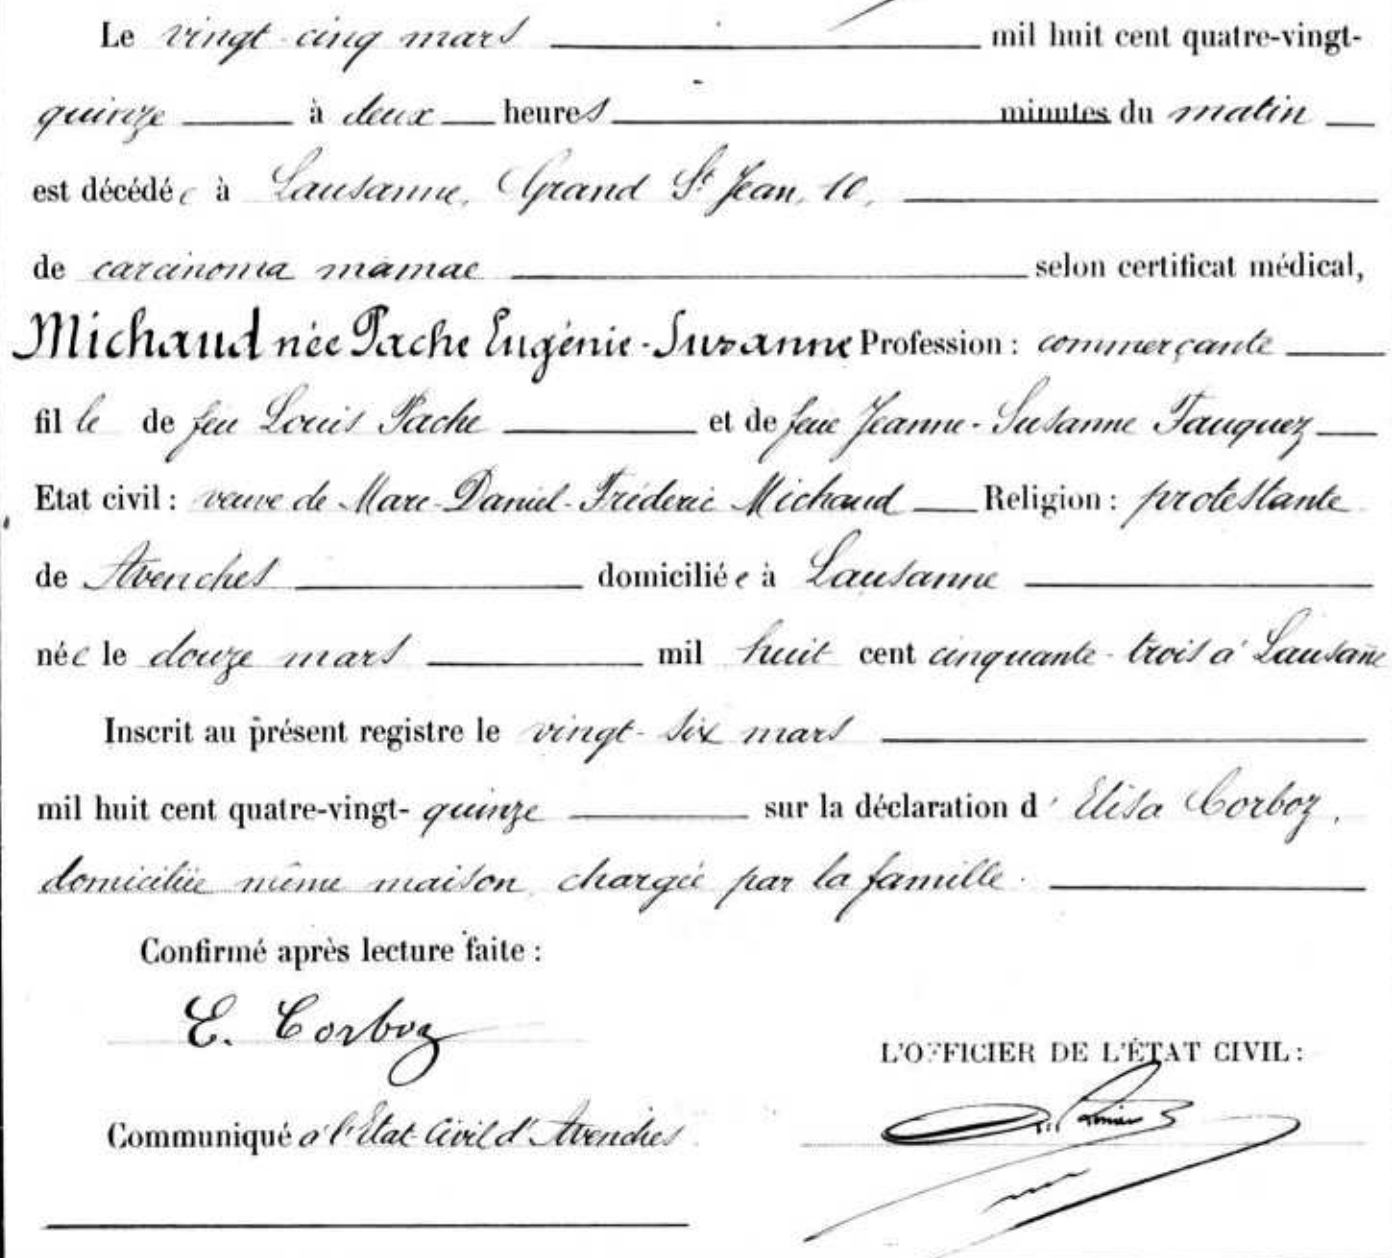 Le vingt-cinq mars mil huit cent quatre-vingt-
quinze à deux heures minutes du matin
est décédée à Lausanne, Grand St Jean, 10,
de carcinoma mamae selon certificat médical,
Michaud née Pache Eugénie-Suzanne Profession : commerçante
fille de feu Louis Pache et de feue Jeanne-Susanne Fauquez
Etat civil : veuve de Marc-Daniel-Fréderic Michaud Religion : protestante
de Avenches domiciliée à Lausanne
née le douze mars mil huit cent cinquante-trois à Lausanne
Inscrit au présent registre le vingt-six mars
mil huit cent quatre-vingt-quinze sur la déclaration d'Elisa Corboz,
domiciliée même maison, chargée par la famille.
Confirmé après lecture faite :
E. Corboz
L'OFFICIER DE L'ÉTAT CIVIL :
Communiqué à l'Etat-Civil d'Avenches